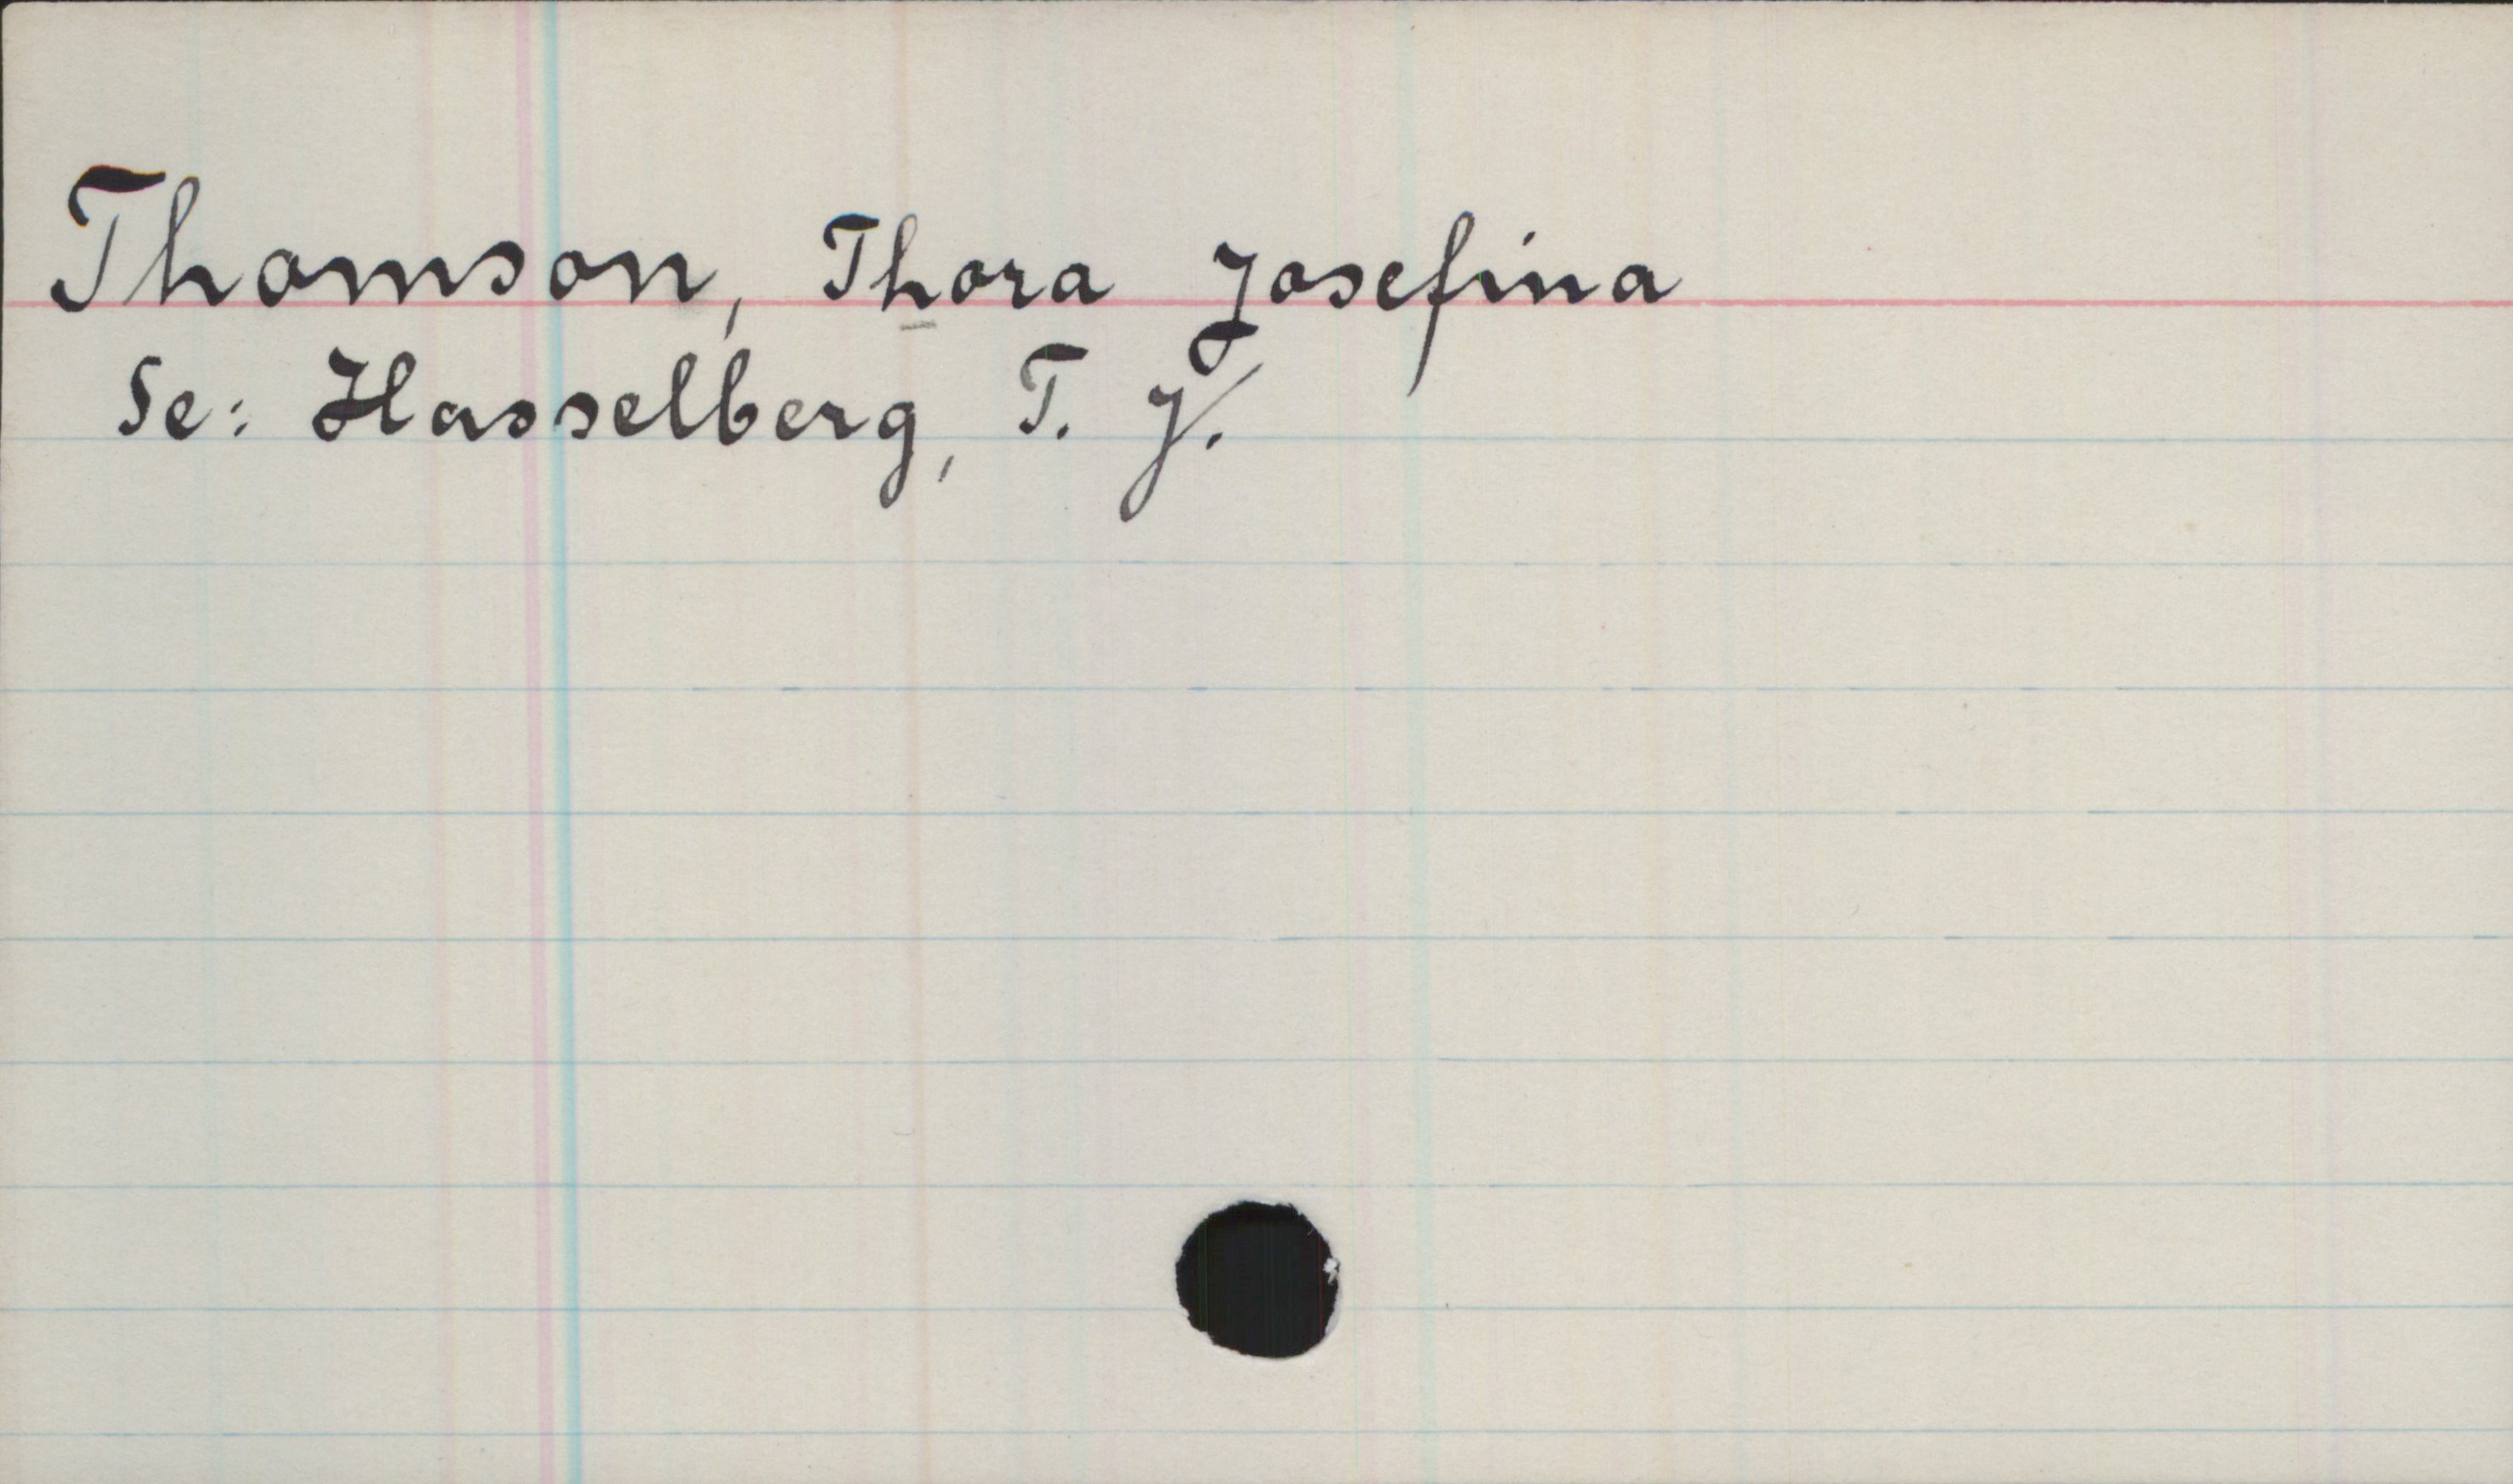 Thomson, Thora Josefina
Se: Hasselberg, T. J.